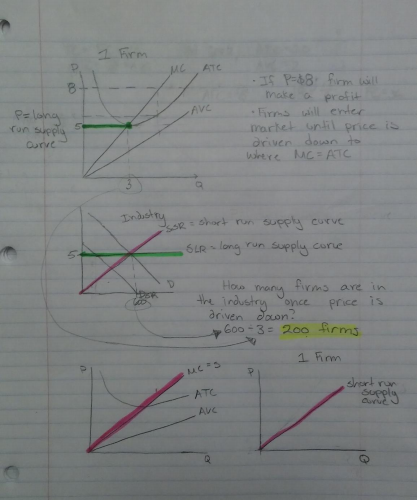 1 Firm
P
MC
ATC
8
AVC
5
3
Q
P=long
run supply
curve
• If P=$8: firm will
make a profit
• Firms will enter
market until price is
driven down to
where MC=ATC
Industry
SSR = short run supply curve
5
SLR = long run supply curve
D
600
How many firms are in
the industry once price is
driven down?
600 ÷ 3 = 200 firms
P
MC = S
ATC
AVC
Q
1 Firm
P
short run
supply
curve
Q